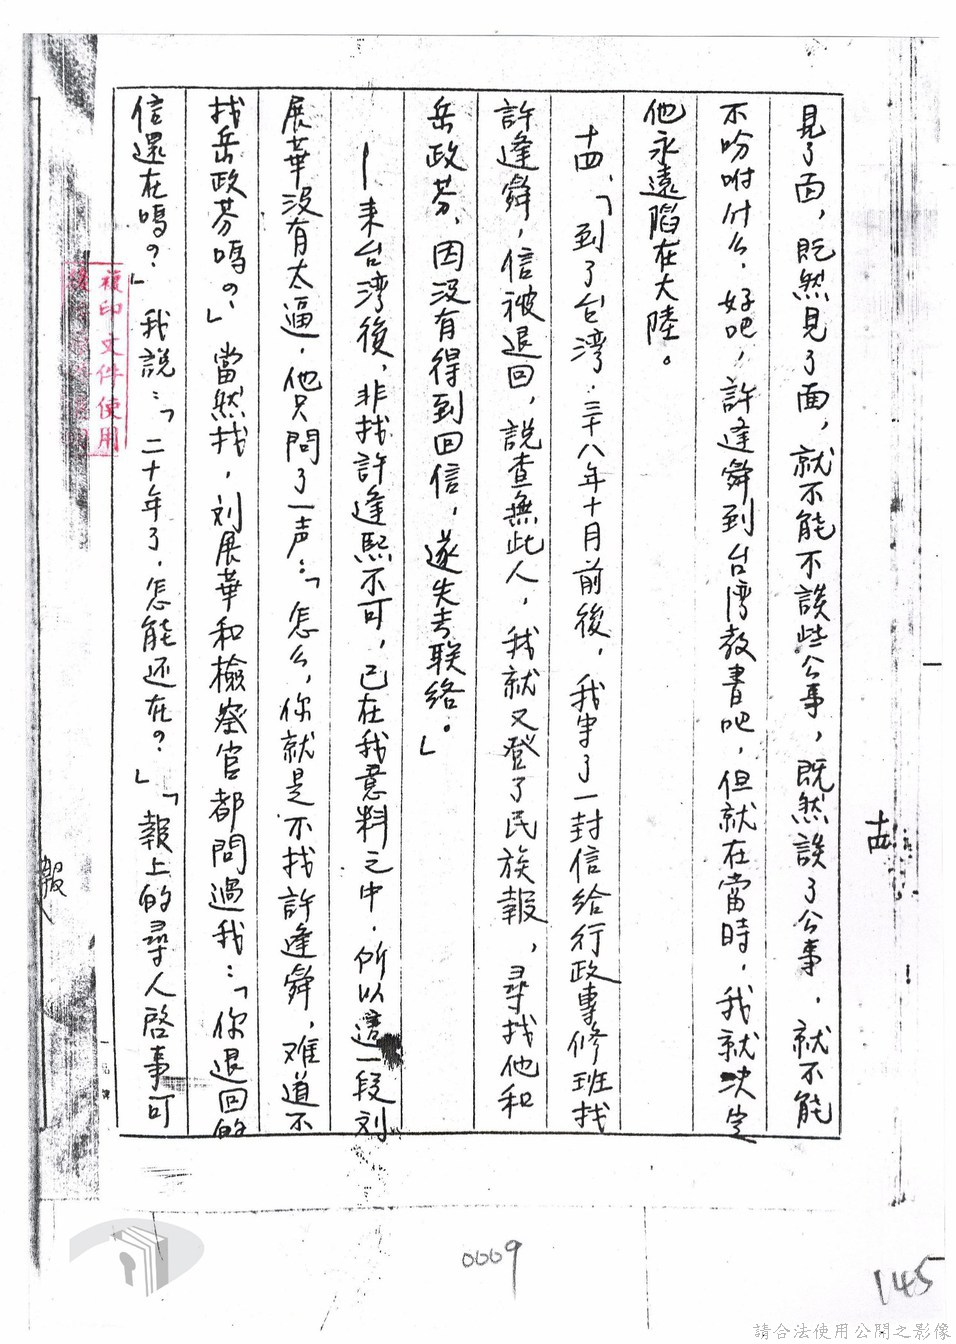 見了面，既然見了面，就不能不談些公事，既然談了公事，就不能
不吩咐什么．好吧，許逢舜到台湾教書吧，但就在當時，我就决定
他永遠陷在大陸。
十四、「到了台湾．三十八年十月前後，我事了一封信給行政專修班找
許逢舜，信被退回，說查無此人，我就又登了民族報，尋找他和
岳政芬、因没有得到回信，遂失去联络。」
一来台湾後，非找許逢熙不可，已在我意料之中．所以這一段刘
展華没有太逼．他只問了一声：「怎么，你就是不找許逢舜，难道不
找岳政芬嗎？」當然找，刘展華和檢察官都問過我：「你退回的
信還在嗎？」我說：「二十年了．怎能还在？」「報上的尋人啓事可
十四
報
複印文件使用
0009
145
請合法使用公開之影像